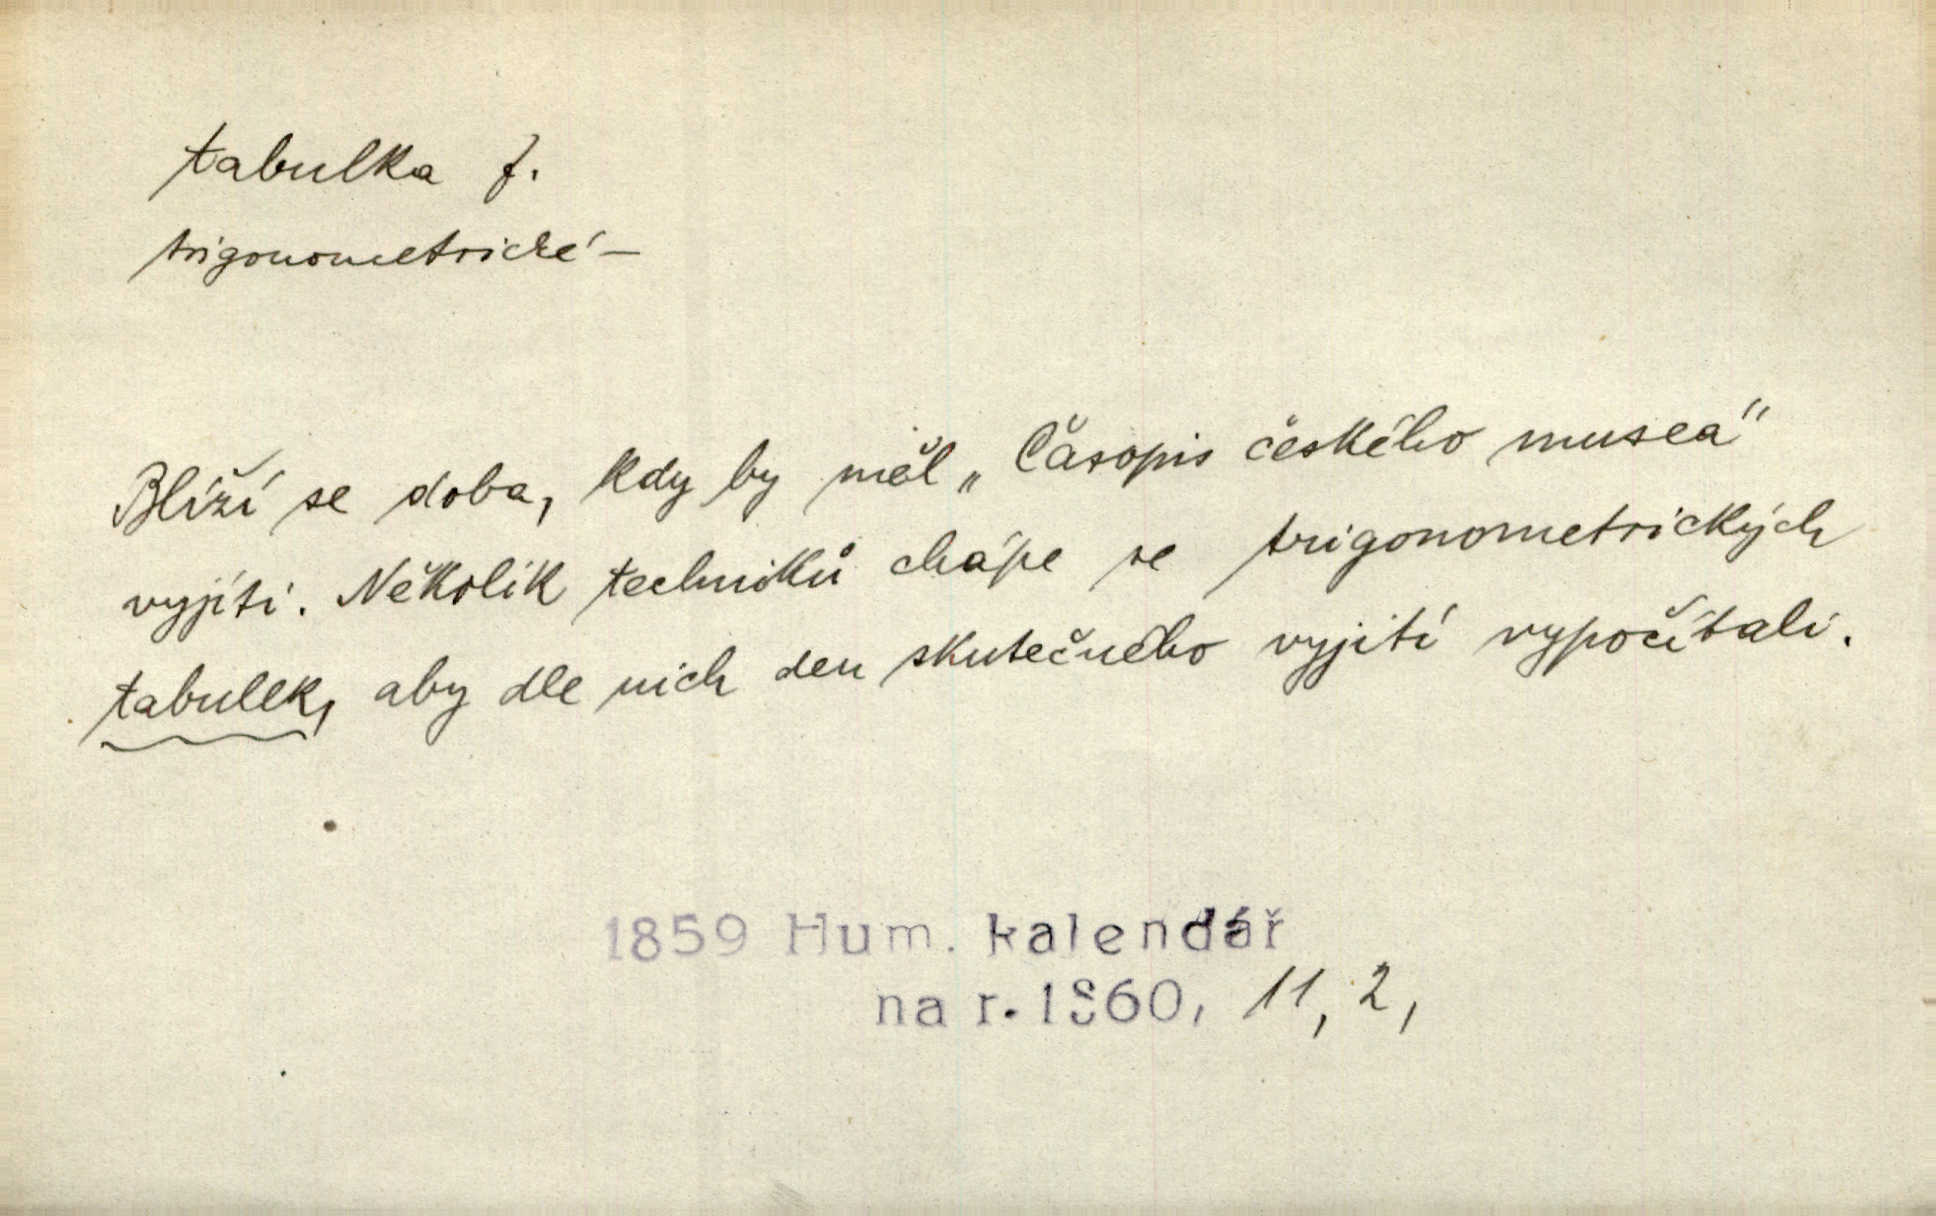 tabulka f.
trigonometrické –
Blíží se doba, kdy by měl „Časopis českého musea“
vyjíti. Několik techniků chápe se trigonometrických
tabulek, aby dle nich den skutečného vyjití vypočítali.
1859 Hum. kalendář
na r. 1860, 11, 2,